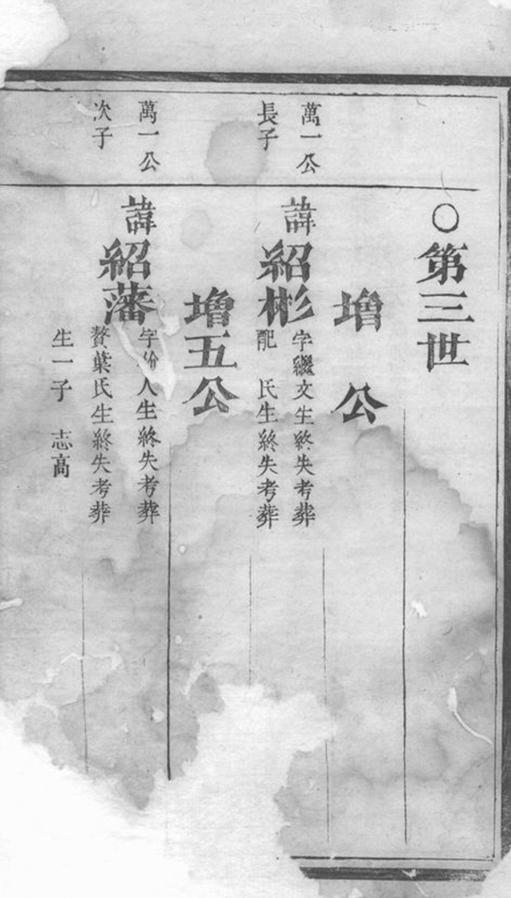 ○第三世
增　公
萬一公
長子
諱紹彬
字繼文生終失考葬
配　氏生終失考葬
增五公
萬一公
次子
諱紹藩
字　人生終失考葬
贅葉氏生終失考葬
生一子　志高